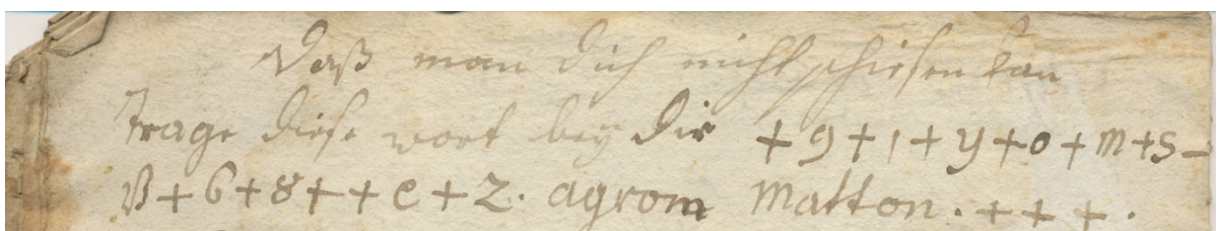 Daß man dich nicht schiesen kan
trage diese wort bey dir + 9 + 1 + y + o + m + s –
B + 6 + 8 + + e + 2. agrom matton. + + + .